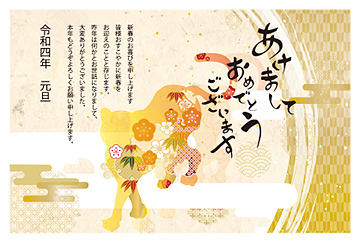 あけまして
おめでとう
ございます
新春のお喜びを申し上げます
皆様おすこやかに新春を
お迎えのことと存じます。
昨年は何かとお世話になりまして、
大変ありがとうございました。
本年もどうぞよろしくお願い申し上げます。
令和四年　元旦